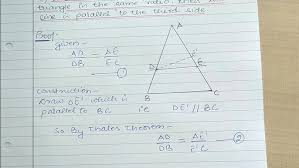 triangle in the same ratio, then
line is parallel to the third side
Proof:-
given -
AD/DB = AE/EC - ①
Construction -
Draw DE' which is
parallel to BC i.e DE' || BC
So By Thales Theorem -
AD/DB = AE'/E'C - ②
A
D
E'
E
B
C